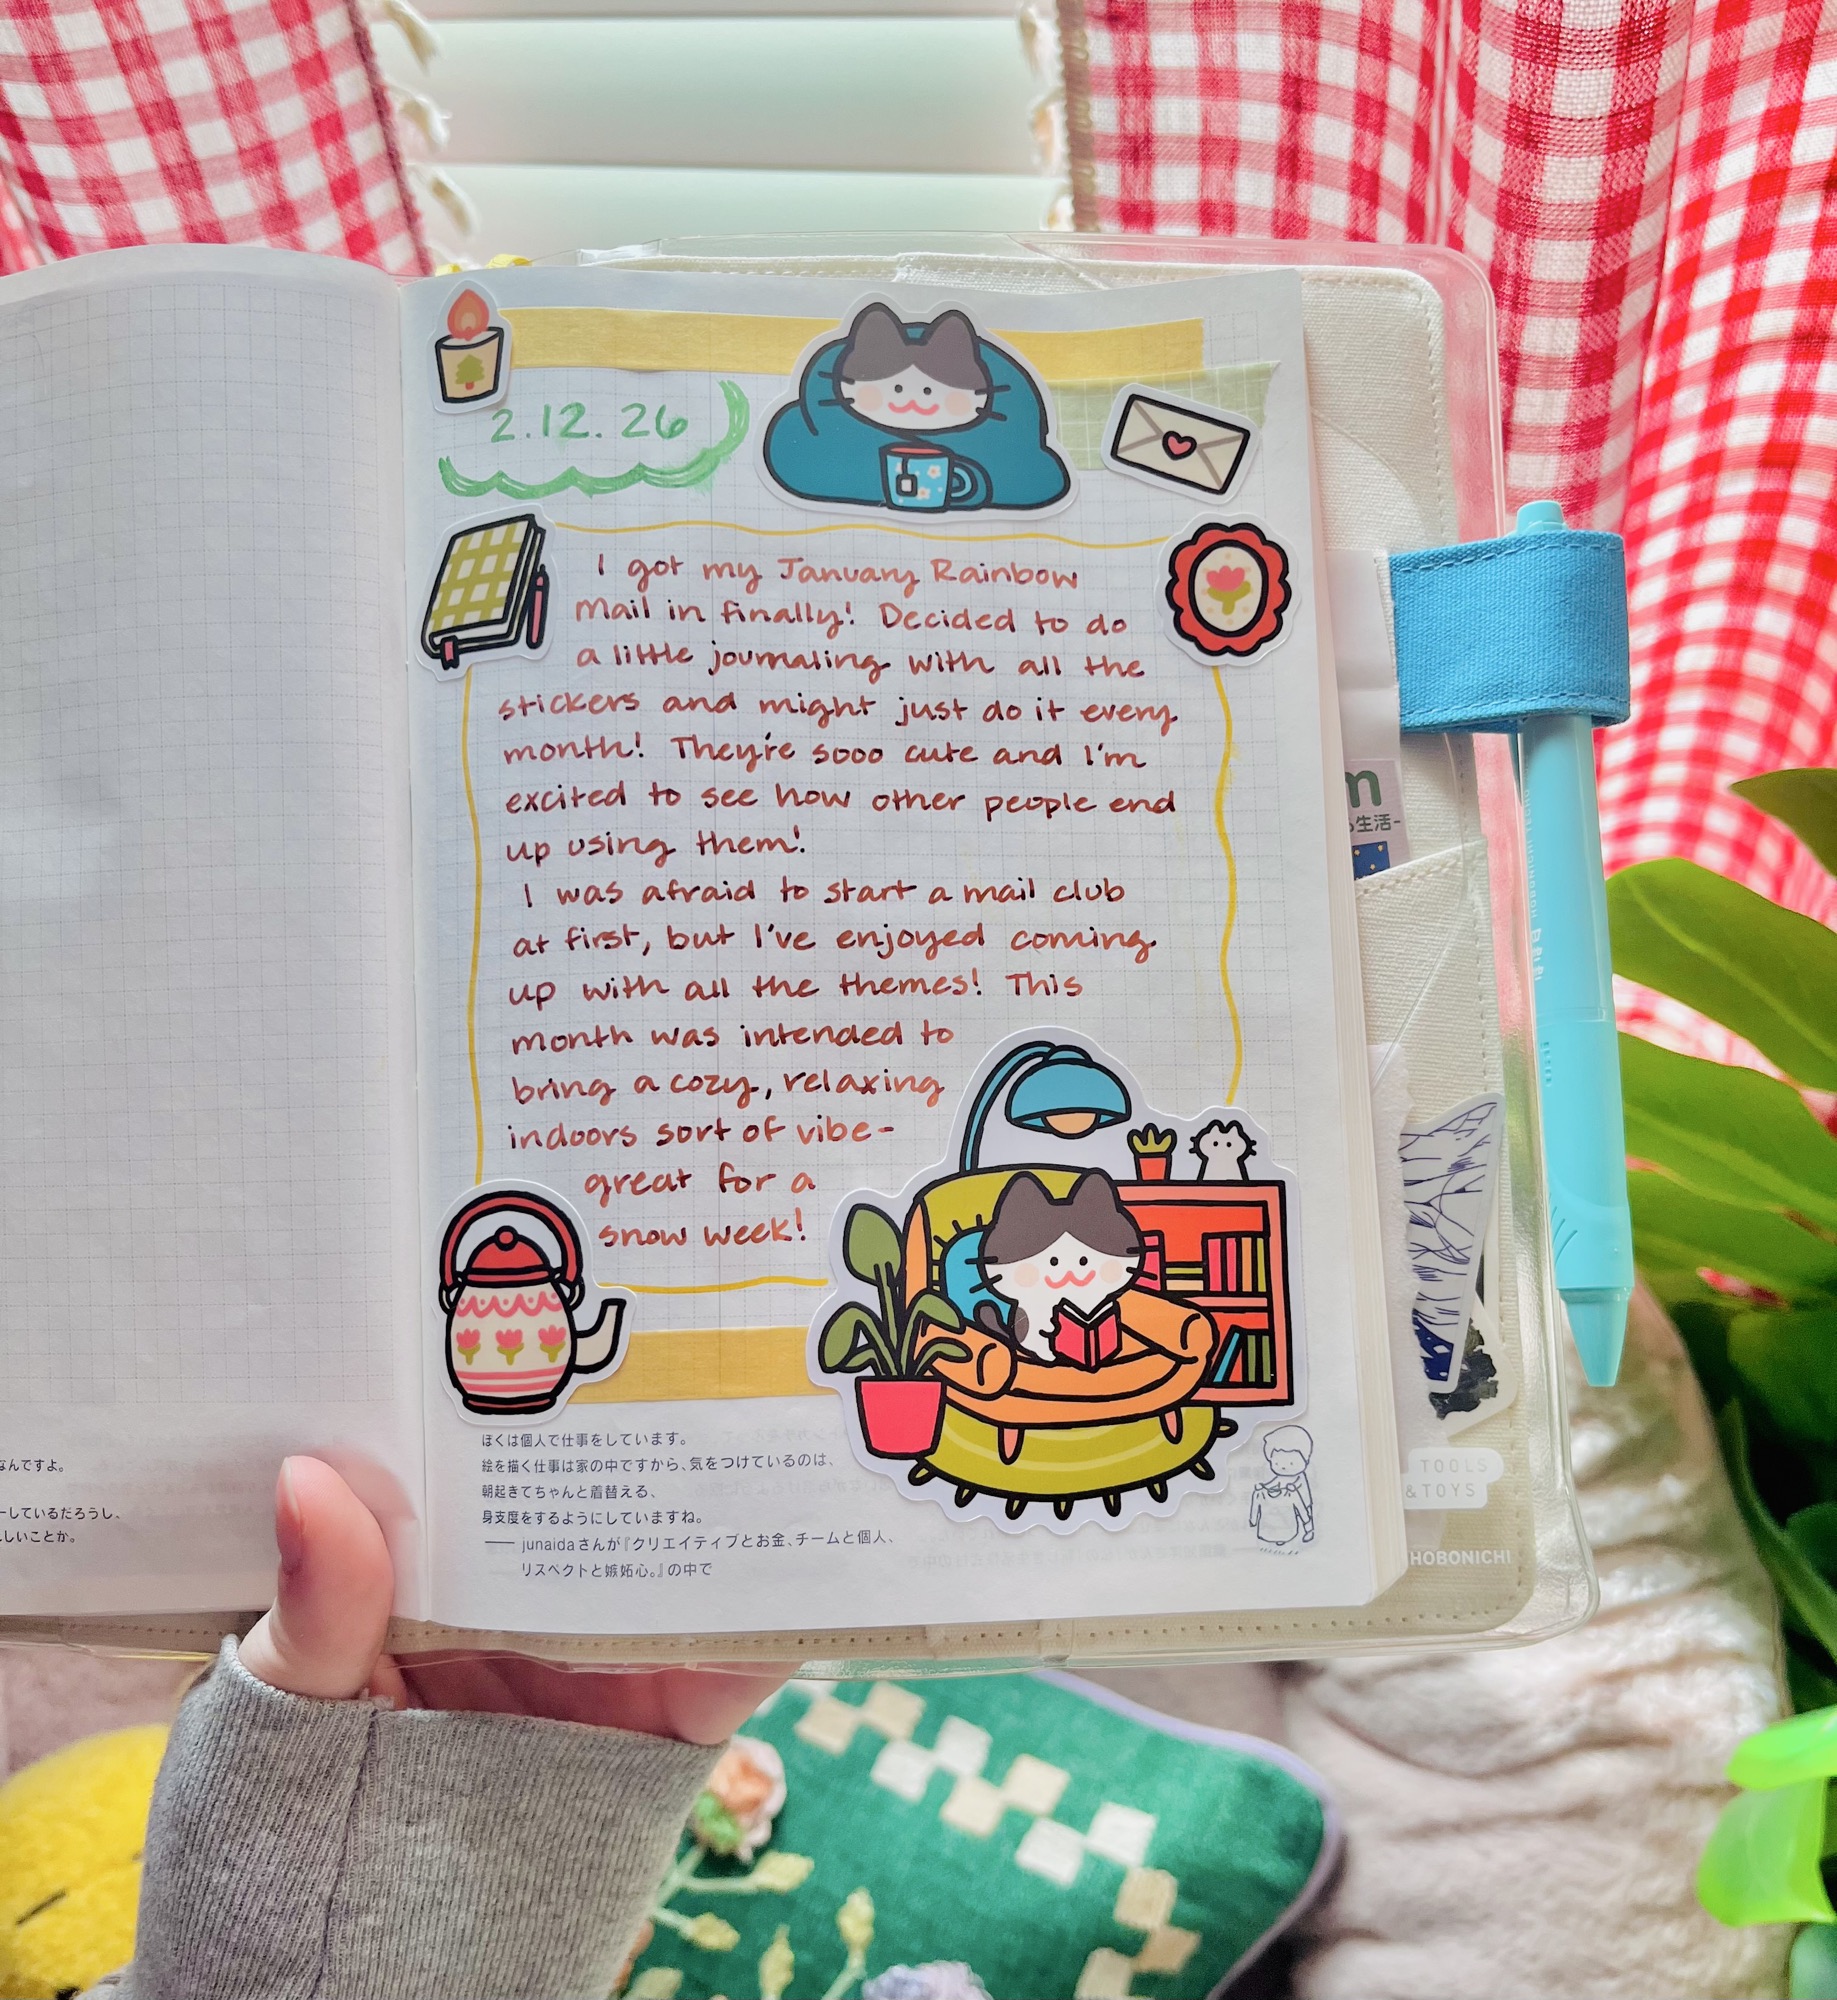 2.12.26
I got my January Rainbow
Mail in finally! Decided to do
a little journaling with all the
stickers and might just do it every
month! They're sooo cute and I'm
excited to see how other people end
up using them!
I was afraid to start a mail club
at first, but I've enjoyed coming
up with all the themes! This
month was intended to
bring a cozy, relaxing
indoors sort of vibe-
great for a
snow week!
ぼくは個人で仕事をしています。
絵を描く仕事は家の中ですから、気をつけているのは、
朝起きてちゃんと着替える、
身支度をするようにしていますね。
── junaidaさんが『クリエイティブとお金、チームと個人、
リスペクトと嫉妬心。』の中で
なんですよ。
ーしているだろうし、
しいことか。
m
生活-
TOOLS
&TOYS
HOBONICHI